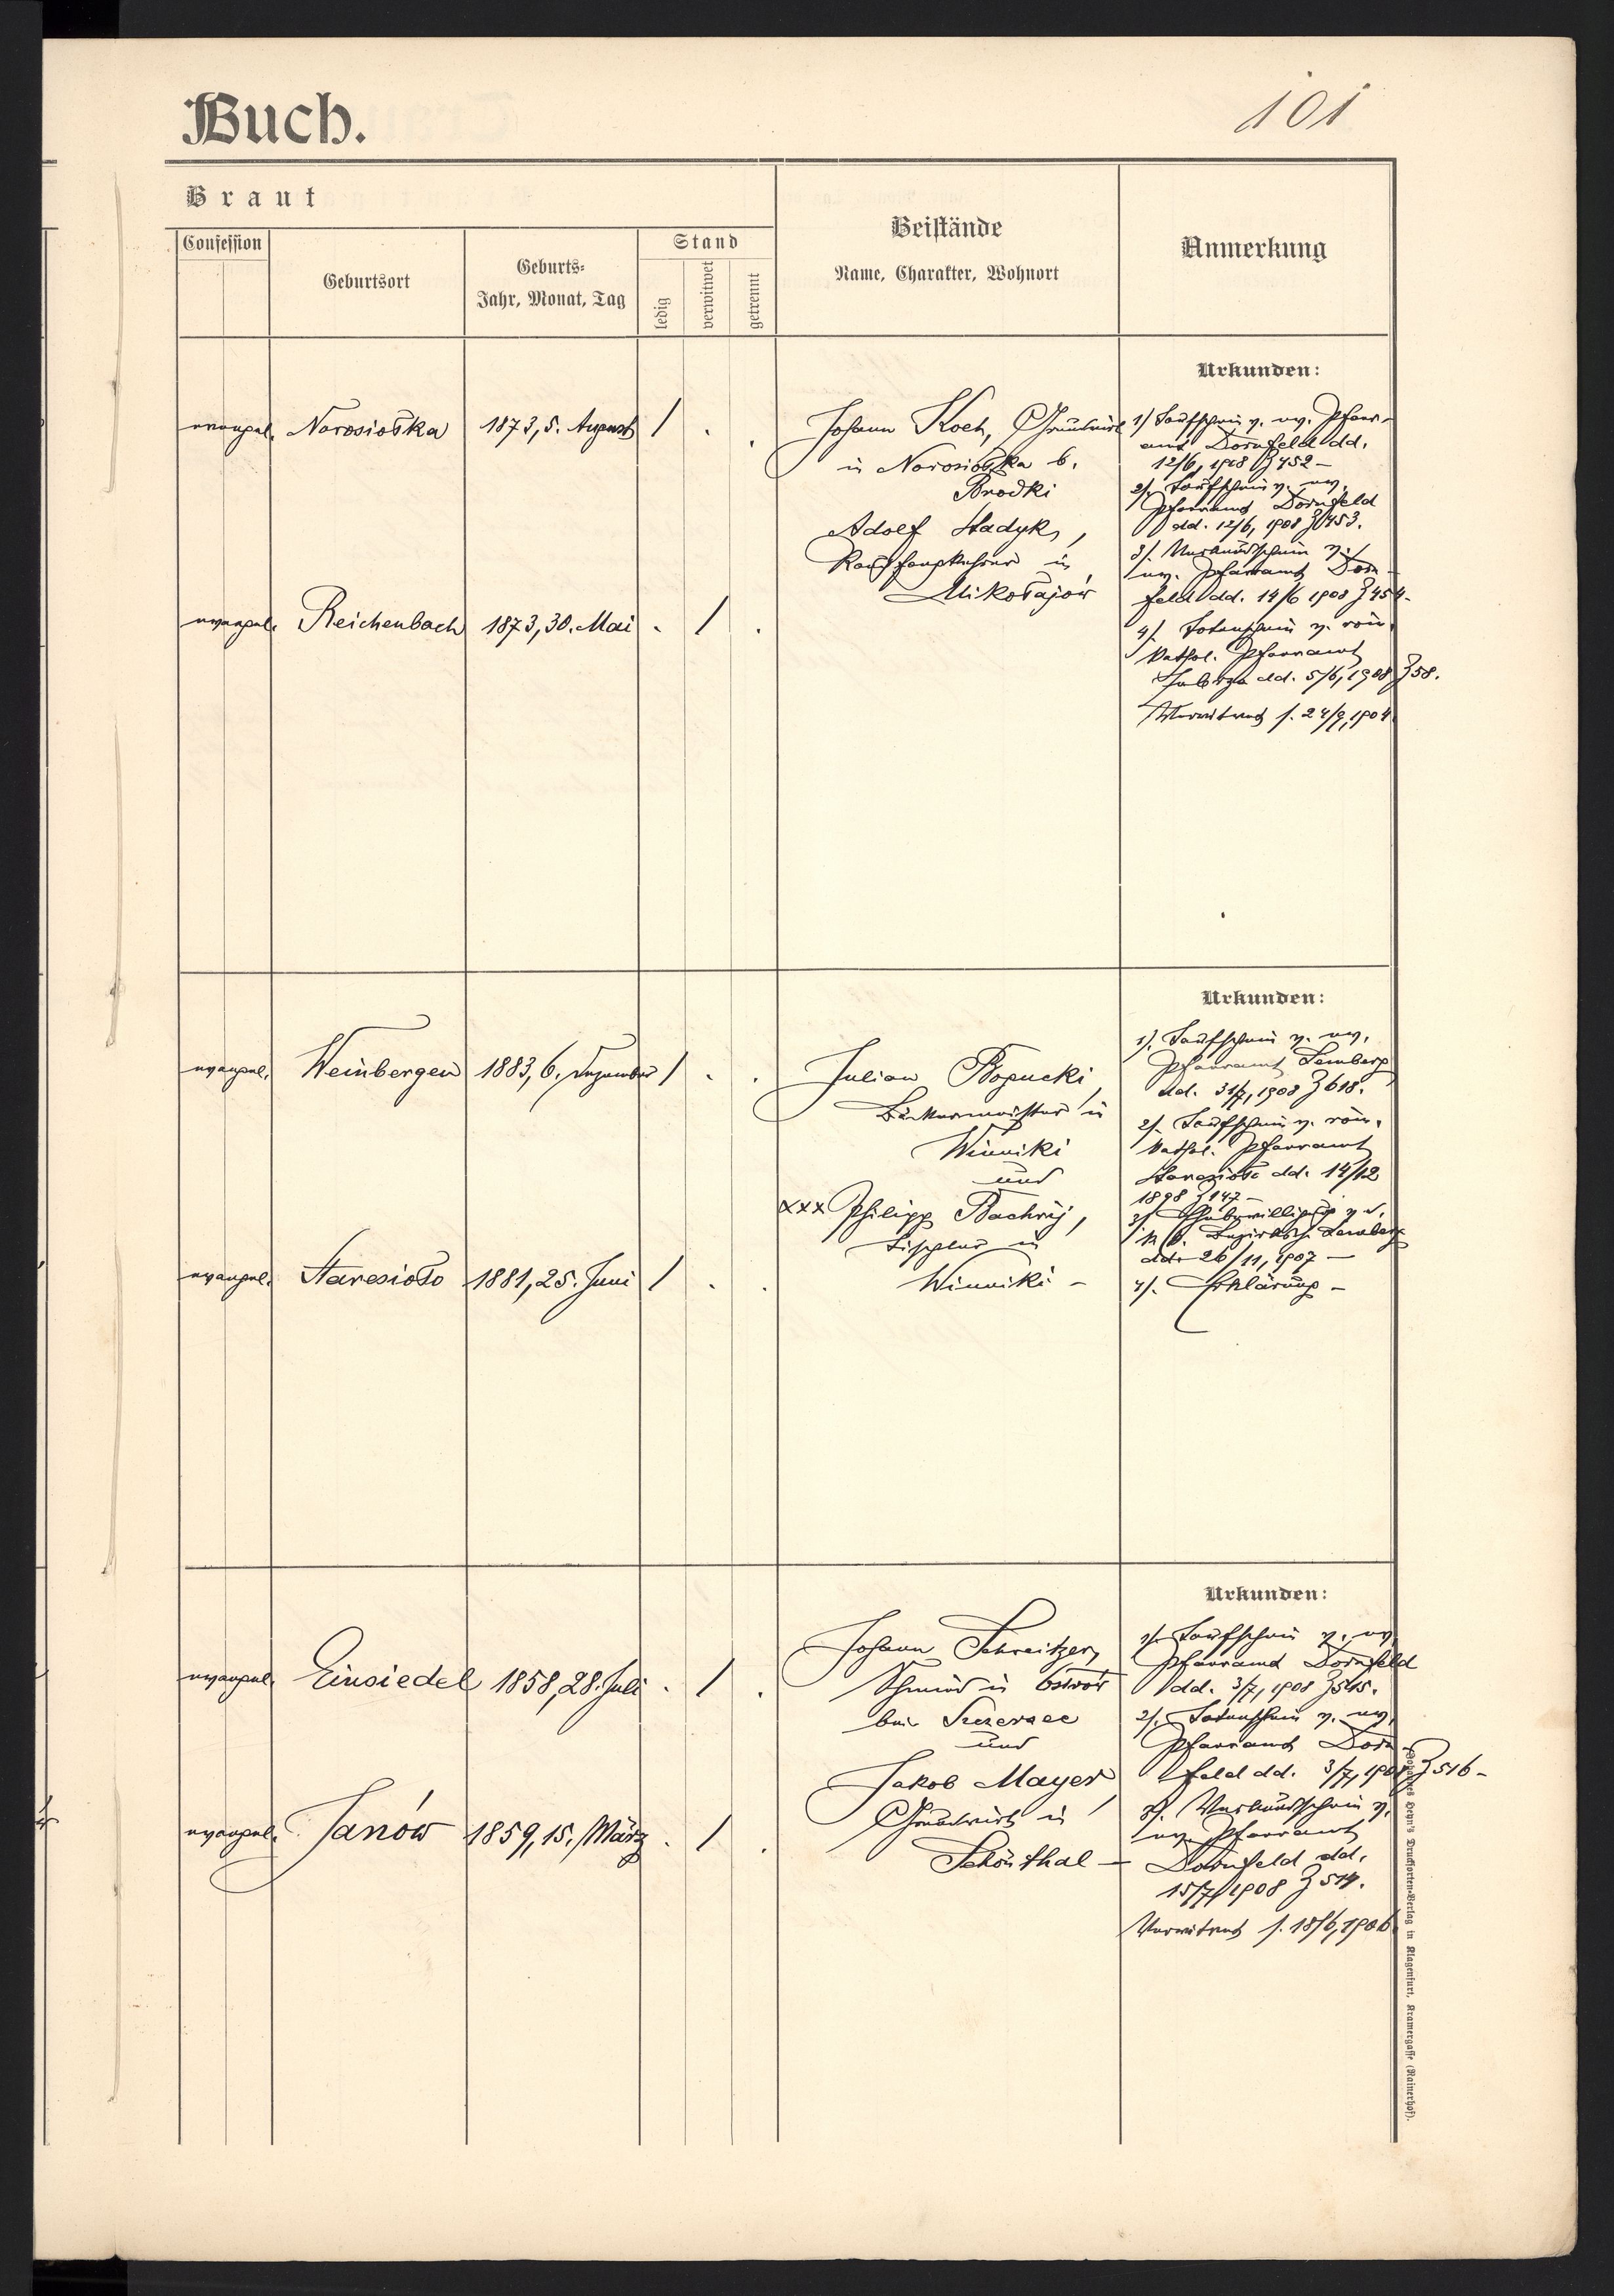 Buch.
101
Braut
Confession
Geburtsort
Geburts-
Jahr, Monat, Tag
Stand
ledig
verwitwet
getrennt
Beistände
Name, Charakter, Wohnort
Anmerkung
evangel. Nowosiołka 1873, 5. August / . .
Johann Koch, Grundwirt
in Nowosiołka b.
Brodki
Adolf Stadyk,
Rauchfangkehrer in
Mikołajów
Urkunden:
1/ Taufschein v. ev. Pfarr-
amt Dornfeld dd.
12/6, 1908 Z 452 –
2/. Taufschein v. ev.
Pfarramt Dornfeld
dd. 12/6, 1908 Z 453.
3/. Verkündschein v.
ev. Pfarramt Dorn-
feld dd. 14/6 1908 Z 454.
4/. Totenschein v. röm.
kathol. Pfarramt
dd. 5/6, 1908 Z 58.
Verwitwet s. 24/9, 1904
evangel. Reichenbach 1873, 30. Mai . / .
evangel. Weinbergen 1883, 6. Dezember / . .
Julian Bogucki,
Bäckermeister in
Winniki
und
xxx Philipp Bachrij,
Tischler in
Winniki –
Urkunden:
1/. Taufschein v. ev.
Pfarramt Lemberg
dd. 31/7, 1908 Z 618.
2/. Taufschein v. röm.
kathol. Pfarramt
Staresioło dd. 14/12
1898 Z 147 –
3/. Ehebewilligung v. d.
k. k. Bezirksh. Lemberg
dd. 26/11, 1907 –
4/. Erklärung –
evangel. Staresioło 1881, 25. Juni / . .
evangel. Einsiedel 1858, 28. Juli . / .
Johann Schreitzer,
Schmied in Ostrów
bei Szczerzec
und
Jakob Mayer,
Grundwirt in
Schönthal –
Urkunden:
1/. Taufschein v. ev.
Pfarramt Dornfeld
dd. 3/7, 1908 Z 515.
2/. Totenschein v. ev.
Pfarramt Dorn-
feld dd. 3/7, 1908 Z 516 –
3/. Verkündschein v.
ev. Pfarramt
Dornfeld dd.
15/7, 1908 Z 514.
Verwitwet s. 18/6, 1906
evangel. Janów 1859, 15. März . / .
Johannes Heyn's Drucksorten-Verlag in Klagenfurt, Kramergasse (Rainerhof).